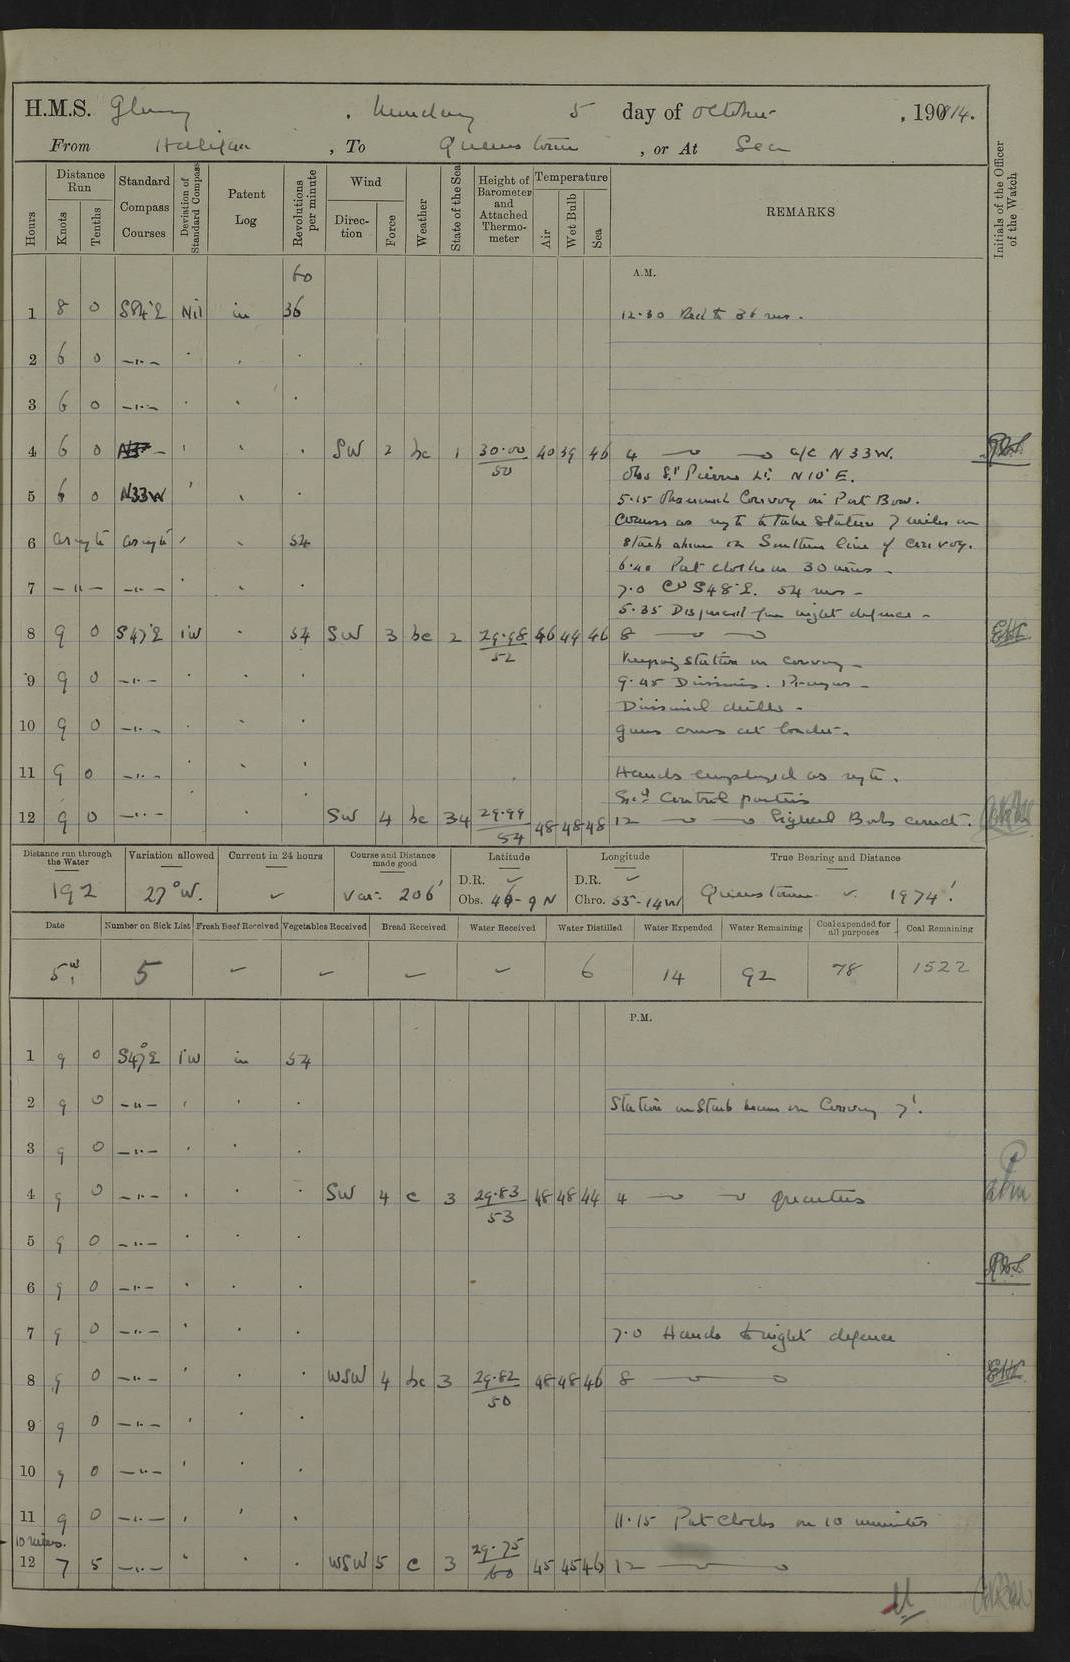 H.M.S. Glory , Monday 5 day of October , 1914.
From Halifax , To Queenstown , or At Sea
Hours
Distance Run
Knots
Tenths
Standard Compass Courses
Deviation of Standard Compass
Patent Log
Revolutions per minute
Wind
Direction
Force
Weather
State of the Sea
Height of Barometer and Attached Thermometer
Temperature
Air
Wet Bulb
Sea
REMARKS
Initials of the Officer of the Watch
A.M.
60
1 8 0 S84°E Nil in 36 12.30 Red to 36 revs.
2 6 0 —"—
3 6 0 —"—
4 6 0 SW 2 bc 1 30.00 50 40 39 46 4 a/c N33W.
Obs St Pierre Lt N10°E.
5 6 0 N33W 5.15 Observed Convoy on Port Bow.
Courses as reqte to take Station 7 miles on
6 as reqte as reqte 54 Starb abeam on Southern line of convoy.
6.40 Put clocks on 30 mins
7 —"— —"— 7.0 Co S48°E. 54 revs
5.35 Dispersed from night defence
8 9 0 S47°E 1W 54 SW 3 bc 2 29.98 52 46 44 46 8
Keeping station on convoy
9 9 0 —"— 9.45 Divisions. Prayers
Divisional drills
10 9 0 —"— Guns crews at loader.
11 9 0 —"— Hands employed as reqte.
Control parties
12 9 0 —"— SW 4 bc 34 29.99 54 48 48 48 12 Signal Books correct.
Distance run through the Water 192
Variation allowed 27°W.
Current in 24 hours
Course and Distance made good Var: 206'
Latitude
D.R.
Obs. 46-9 N
Longitude
D.R.
Chro. 55-14W
True Bearing and Distance
Queenstown 1974'.
Date Number on Sick List Fresh Beef Received Vegetables Received Bread Received Water Received Water Distilled Water Expended Water Remaining Coal expended for all purposes Coal Remaining
5 5 6 14 92 78 1522
P.M.
1 9 0 S47°E 1W in 54
2 9 0 —"— Station on Starb beam on Convoy 7'.
3 9 0 —"—
4 9 0 —"— SW 4 c 3 29.83 53 48 48 44 4 Quarters
5 9 0 —"—
6 9 0 —"—
7 9 0 —"— 7.0 Hands to night defence
8 9 0 —"— WSW 4 bc 3 29.82 50 48 48 46 8
9 9 0 —"—
10 9 0 —"—
11 9 0 —"— 11.15 Put Clocks on 10 minutes
10 mins.
12 7 5 —"— WSW 5 c 3 29.75 60 45 45 46 12